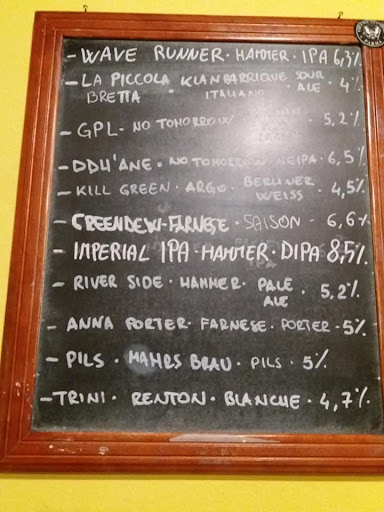 - WAVE RUNNER · HAMMER · IPA 6,3%
- LA PICCOLA KLANBARRIQUE SOUR
BRETTA · ITALIANO · ALE · 4%
- GPL - NO TOMORROW · 5,2%
- DDH'ANE · NO TOMORROW · NEIPA · 6,5%
- KILL GREEN · ARGO · BERLINER
WEISS · 4,5%
- GREENDEW - FARNESE · SAISON - 6,6%
- IMPERIAL IPA · HAMMER · DIPA 8,5%
- RIVER SIDE · HAMMER · PALE
ALE · 5,2%
- ANNA PORTER · FARNESE · PORTER - 5%
- PILS · MAHRS BRAU · PILS · 5%
- TRINI · RENTON · BLANCHE · 4,7%